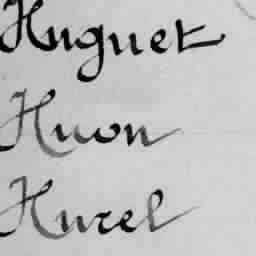 Huguet
Huon
Hurel